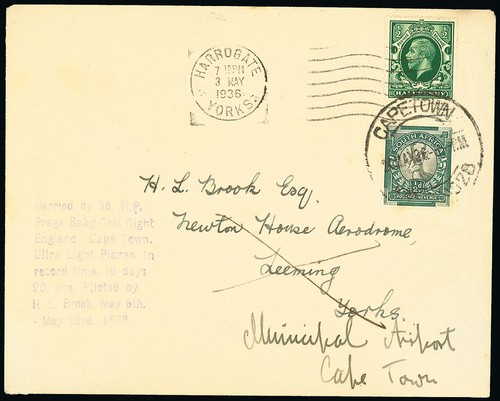 HARROGATE
7 15PM
3 MAY
1936
YORKS.
HALFPENNY
CAPETOWN
SOUTH AFRICA
POSTAGE REVENUE
H. L. Brook Esq.
Newton House Aerodrome,
Leeming
Yorks.
Municipal Airport
Cape Town
Carried by 38. H.P.
Praga Baby first flight
England Cape Town.
Ultra Light Planes. in
record time. 16 days
20. hrs. Piloted by
H. L. Brook. May 6th.
- May 23rd. 1936